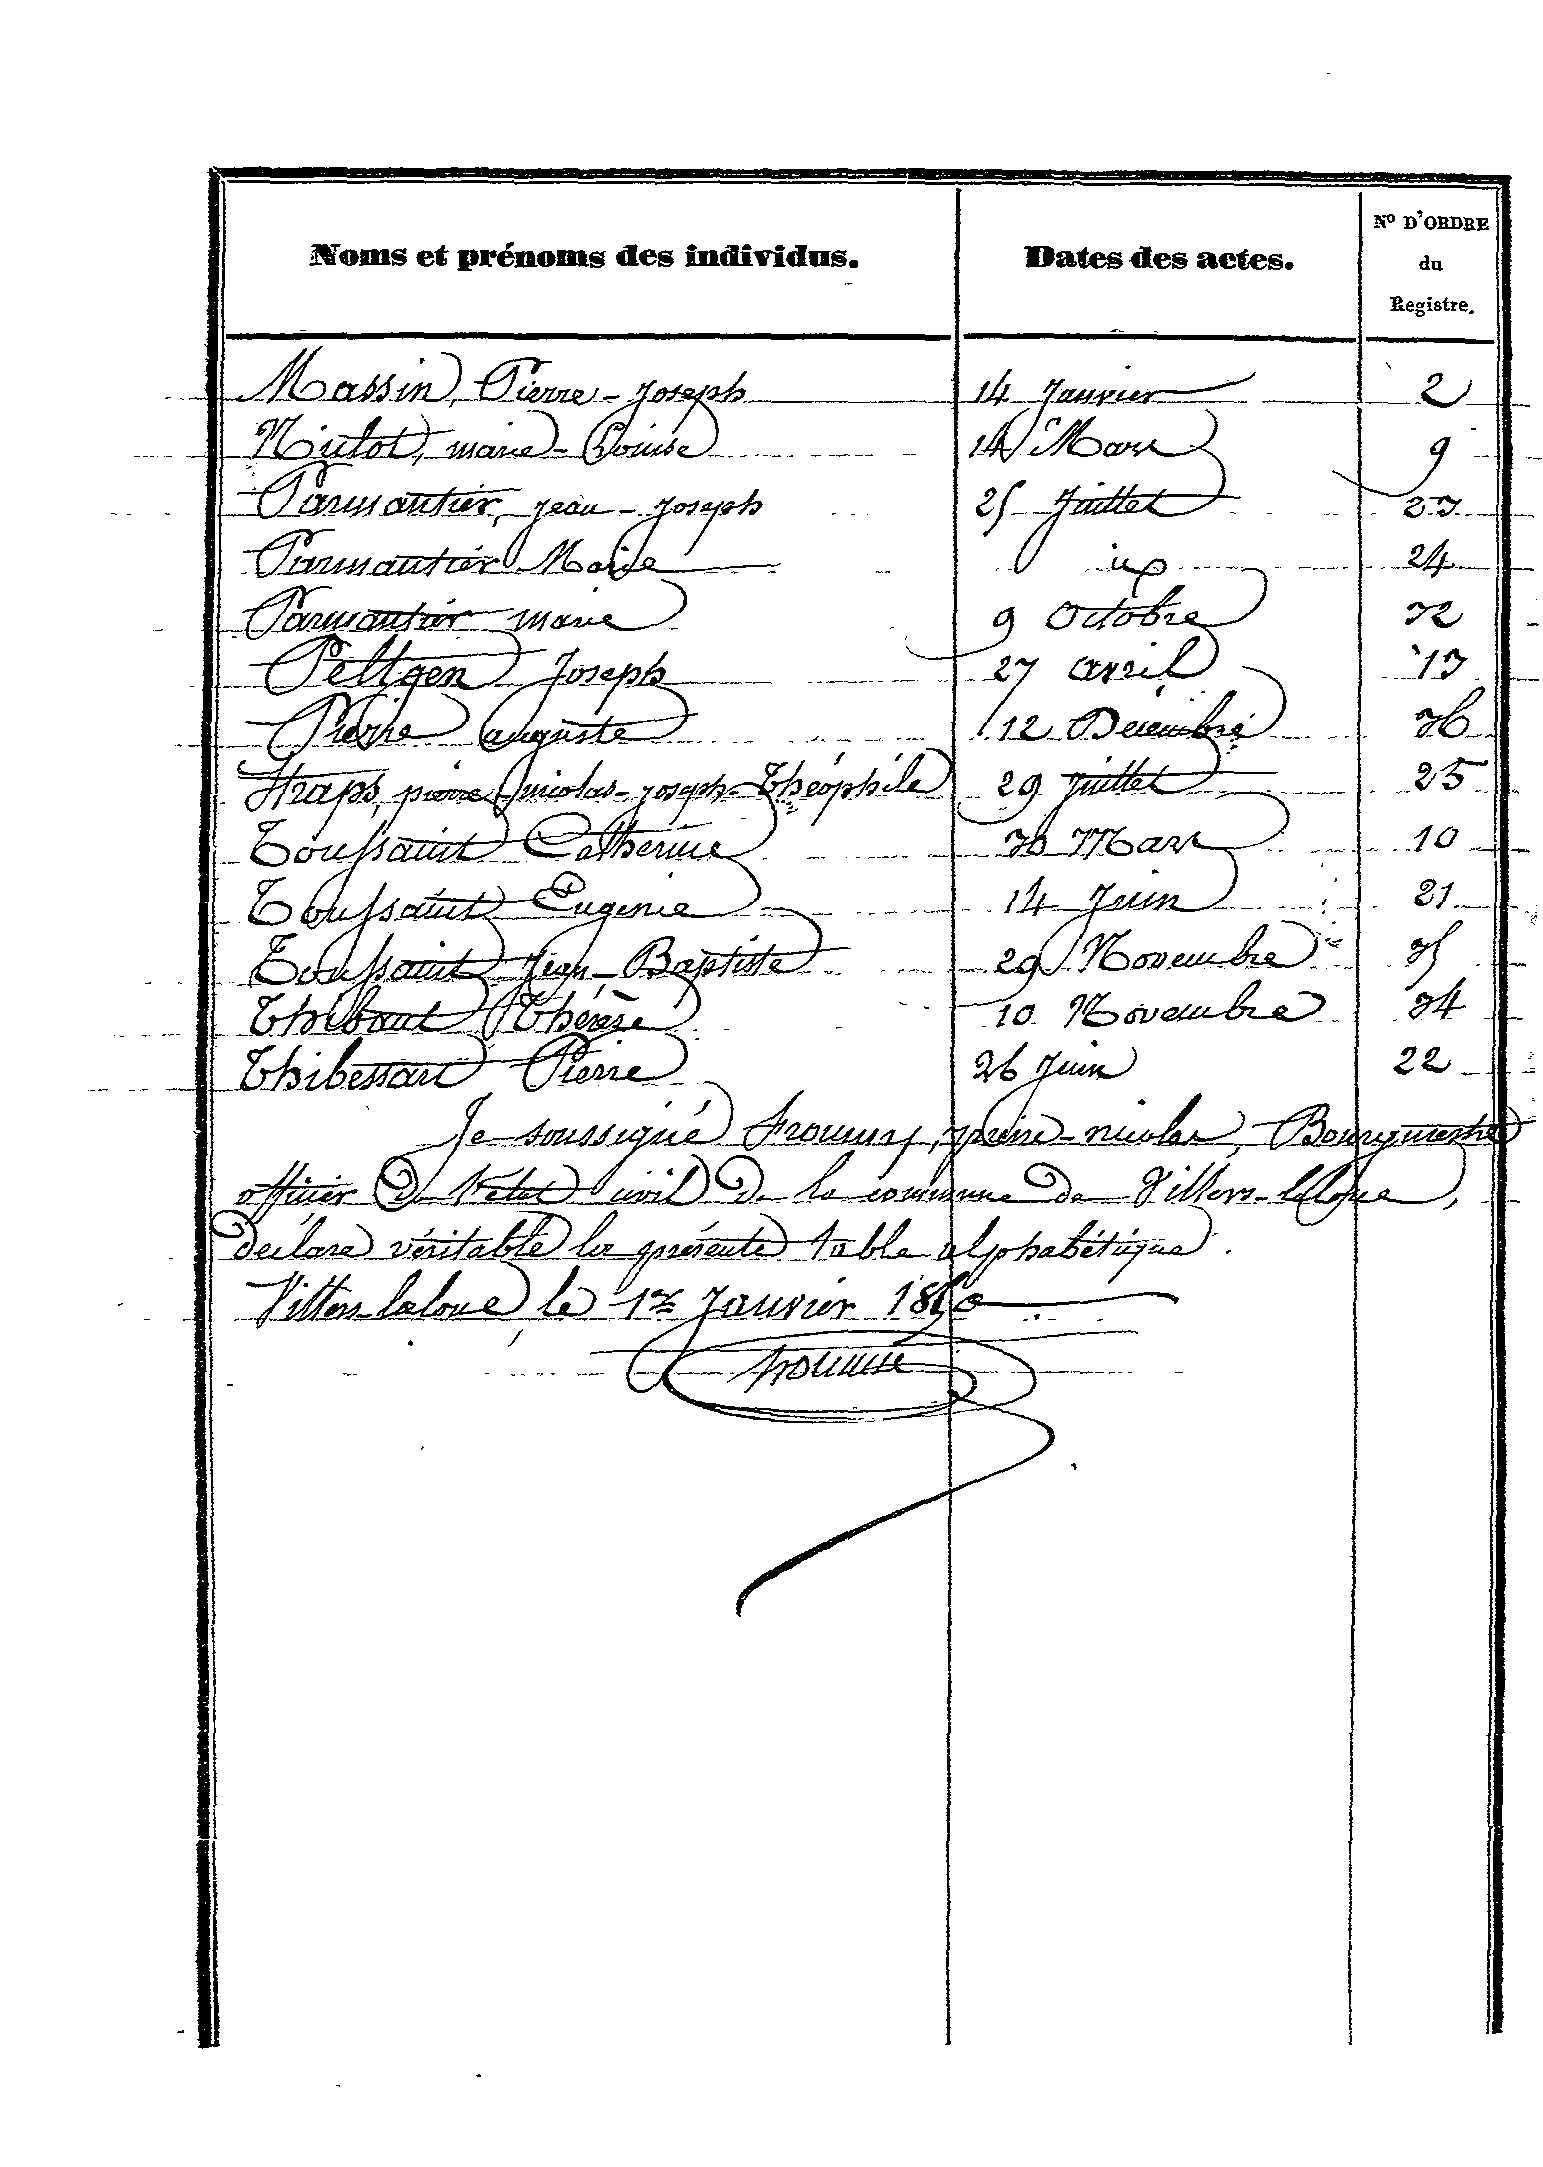 Noms et prénoms des individus. Dates des actes. N° D'ORDRE
du
Registre.
Massin, Pierre-Joseph 14 Janvier 2
Nulot, marie-Louise 14 Mars 9
Parmantier, Jean-Joseph 25 Juillet 23
Parmantier Marie 24
Parmantier marie 9 Octobre 32
Peltgen Joseph 27 avril 13
Pierre auguste 12 Décembre 36
Straps, pierre-nicolas-joseph-Théophile 29 Juillet 25
Toussaint Catherine 30 Mars 10
Toussaint Eugenie 14 Juin 21
Toussaint Jean-Baptiste 29 Novembre 35
Thibaut Thérèse 10 Novembre 34
Thibessart Pierre 26 Juin 22
Je soussigné pierre-nicolas, Bourgmestre
officier de l'etat civil de la commune de Villers-laloue,
déclare véritable la présente table alphabétique.
Villers-laloue, le 1er Janvier 1850